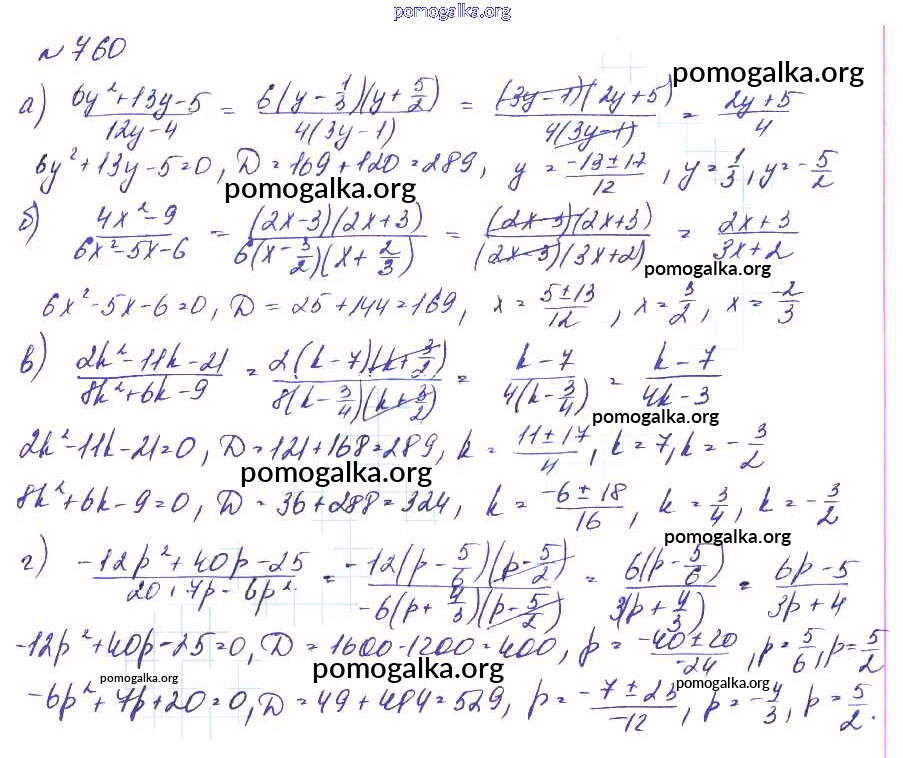 pomogalka.org
№ 760
pomogalka.org
а) (6y²+13y-5)/(12y-4) = 6(y-1/3)(y+5/2)/4(3y-1) = (3y-1)(2y+5)/4(3y-1) = (2y+5)/4
6y²+13y-5=0, D=169+120=289, y=(-13±17)/12, y=1/3, y=-5/2
pomogalka.org
б) (4x²-9)/(6x²-5x-6) = (2x-3)(2x+3)/6(x-3/2)(x+2/3) = (2x-3)(2x+3)/(2x-3)(3x+2) = (2x+3)/(3x+2)
pomogalka.org
6x²-5x-6=0, D=25+144=169, x=(5±13)/12, x=3/2, x=-2/3
в) (2k²-11k-21)/(8k²+6k-9) = 2(k-7)(k+3/2)/8(k-3/4)(k+3/2) = (k-7)/4(k-3/4) = (k-7)/(4k-3)
pomogalka.org
2k²-11k-21=0, D=121+168=289, k=(11±17)/4, k=7, k=-3/2
pomogalka.org
8k²+6k-9=0, D=36+288=324, k=(-6±18)/16, k=3/4, k=-3/2
pomogalka.org
г) (-12p²+40p-25)/(20+7p-6p²) = -12(p-5/6)(p-5/2)/-6(p+4/3)(p-5/2) = 6(p-5/6)/3(p+4/3) = (6p-5)/(3p+4)
-12p²+40p-25=0, D=1600-1200=400, p=(-40±20)/-24, p=5/6, p=5/2
pomogalka.org
pomogalka.org
-6p²+7p+20=0, D=49+484=529, p=(-7±23)/-12, p=-4/3, p=5/2.